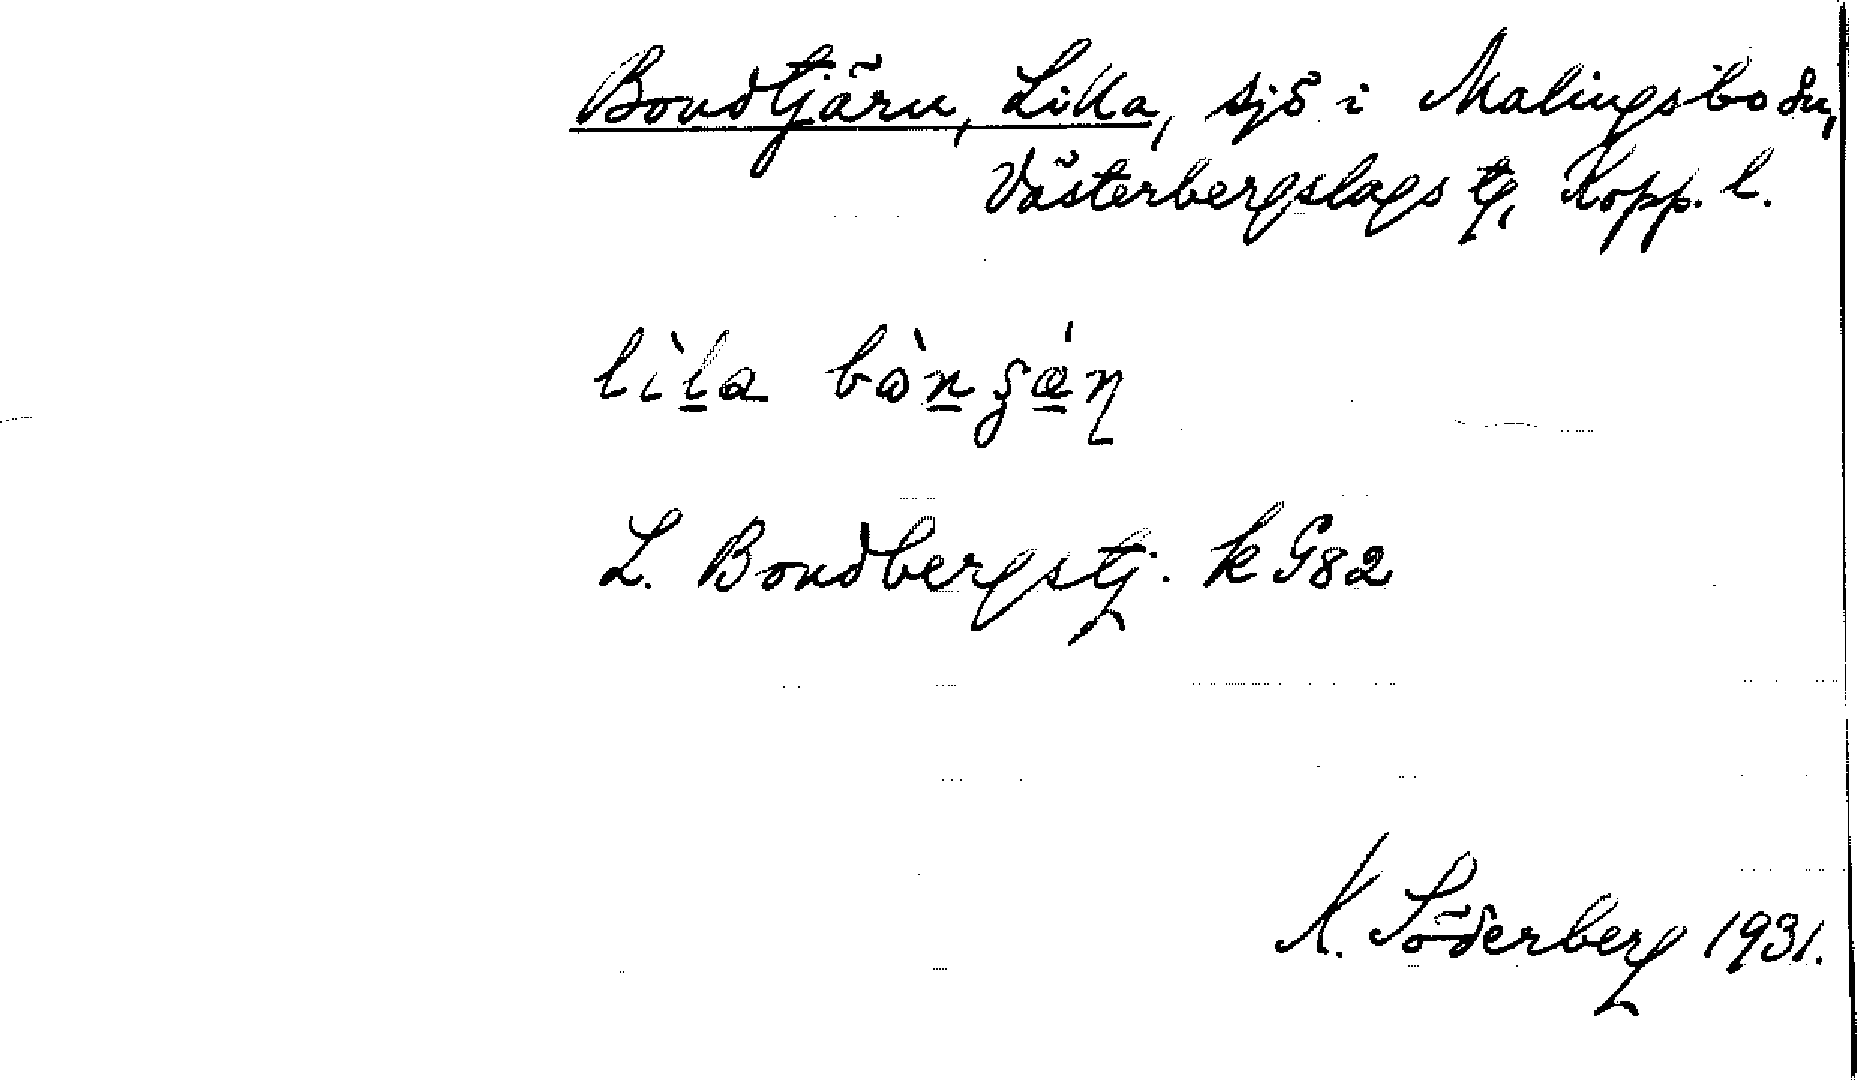 Bondtjärn, Lilla, sjö i Malingsbo sn,
Västerbergslags tg, Kopp. l.
lìla bòn
L. Bondbergstj. k G82
K. Söderberg 1931.